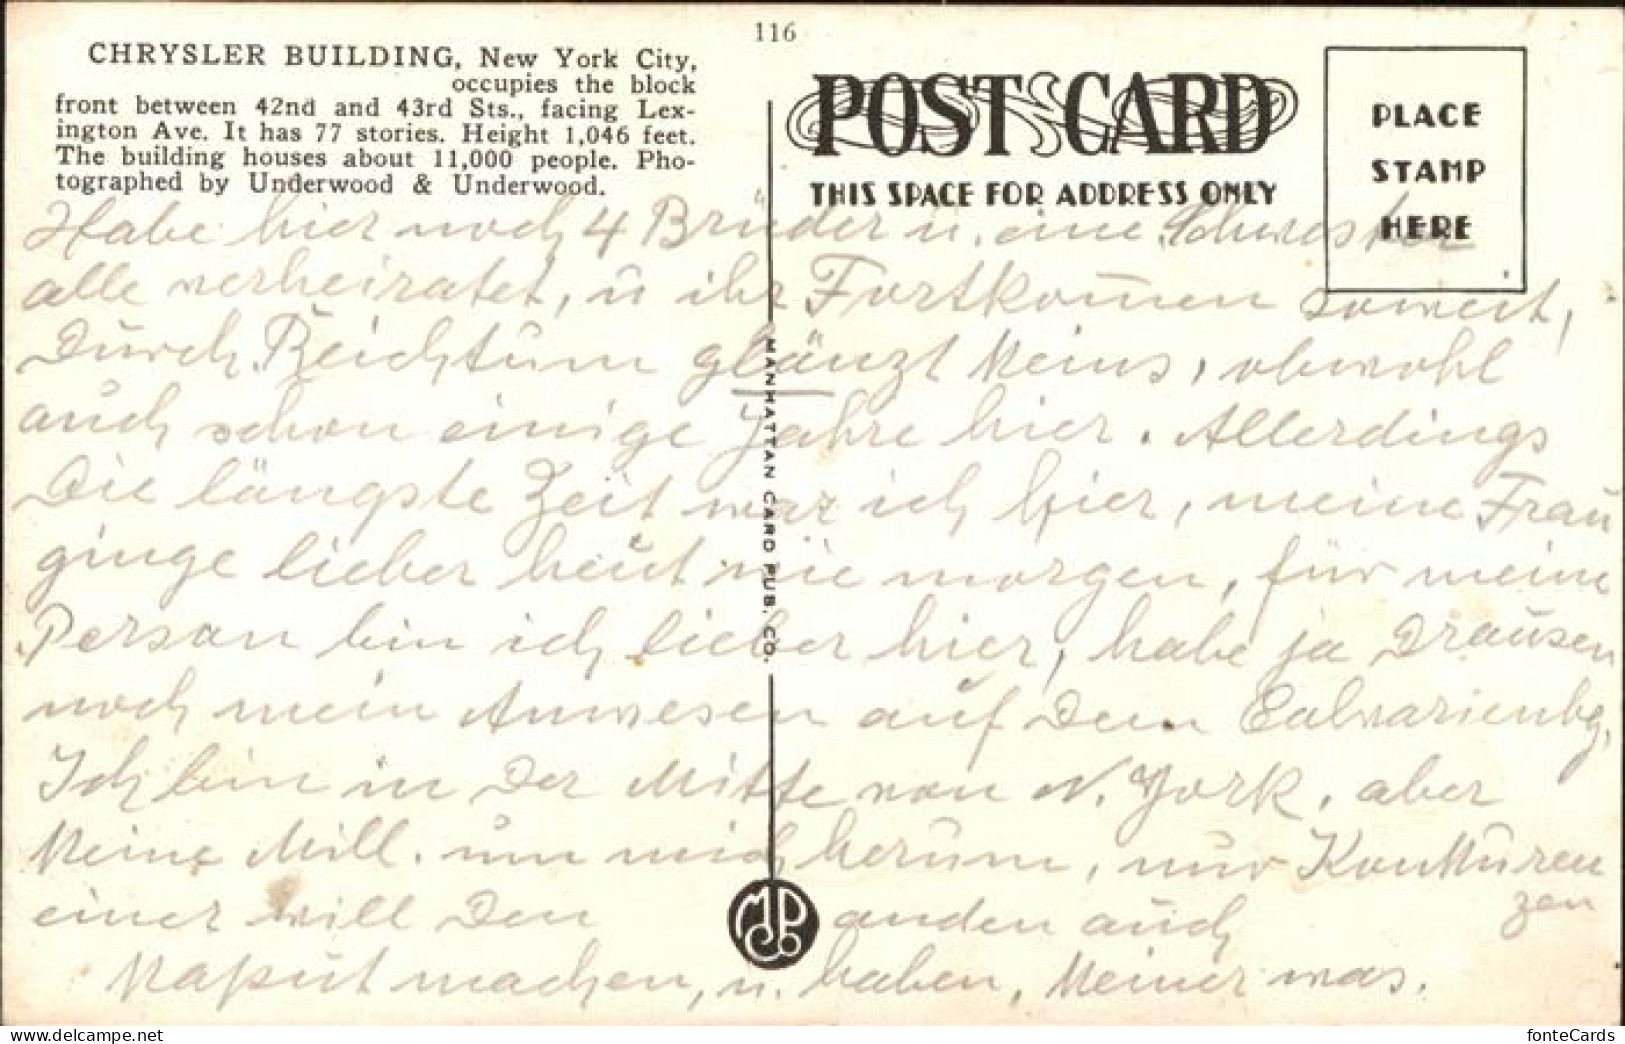 116
CHRYSLER BUILDING, New York City,
occupies the block
front between 42nd and 43rd Sts., facing Lex-
ington Ave. It has 77 stories. Height 1,046 feet.
The building houses about 11,000 people. Pho-
tographed by Underwood & Underwood.
POST CARD
THIS SPACE FOR ADDRESS ONLY
PLACE
STAMP
HERE
Habe hier noch 4 Brüder u. eine Schwester
alle verheiratet, u ihr Fortkom̄en soweit,
Durch Reichtum glänzt Keins, obwohl
auch schon einige Jahre hier. Allerdings
Die längste Zeit war ich hier, meine Frau
ginge lieber heut wie morgen, für meine
Person bin ich lieber hier, habe ja Drausen
noch mein Anwesen auf dem Calvarienbg.
Ich bin in Der Mitte von N. York, aber
Keine Mill. um mich herum, nur Konkuren
zen
einer will Den anden auch
Kaput machen, u. haben, Keiner was.
MANHATTAN CARD PUB. CO.
MCPCo
fonteCards
www.delcampe.net